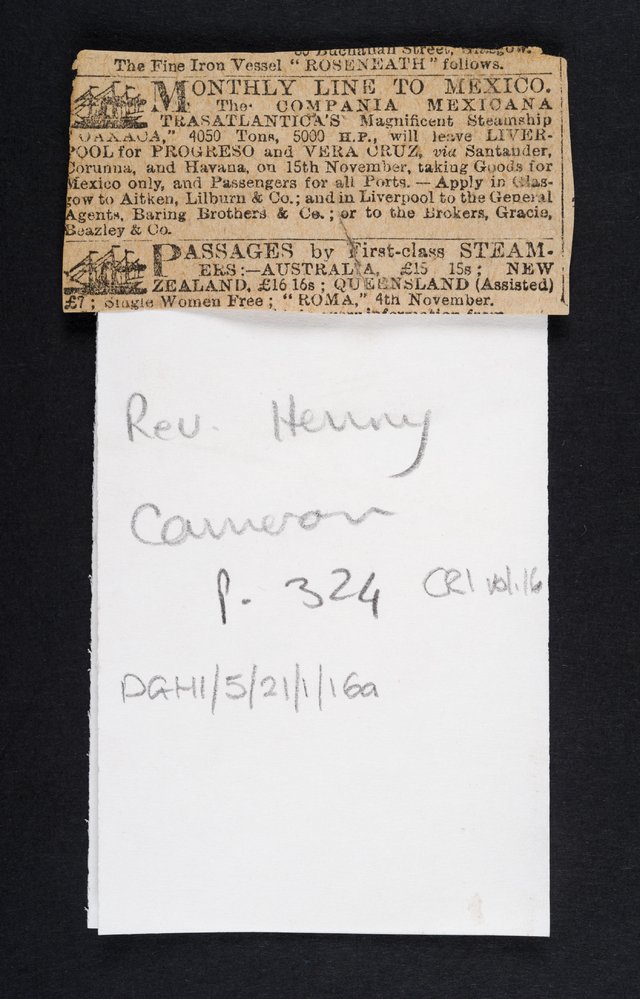 Buchanan Street, Glasgow.
The Fine Iron Vessel "ROSENEATH" follows.
MONTHLY LINE TO MEXICO.
The COMPANIA MEXICANA
TRASATLANTICA'S Magnificent Steamship
"OAXACA," 4050 Tons, 5000 H.P., will leave LIVER-
POOL for PROGRESO and VERA CRUZ, via Santander,
Corunna, and Havana, on 15th November, taking Goods for
Mexico only, and Passengers for all Ports. — Apply in Glas-
gow to Aitken, Lilburn & Co.; and in Liverpool to the General
Agents, Baring Brothers & Co.; or to the Brokers, Gracie,
Beazley & Co.
PASSAGES by First-class STEAM-
ERS:—AUSTRALIA, £15 15s; NEW
ZEALAND, £16 16s; QUEENSLAND (Assisted)
£7; Single Women Free; "ROMA," 4th November.
every information from
Rev. Henry
Cameron
p. 324 CRI vol.16
DGH1/5/21/1/16a